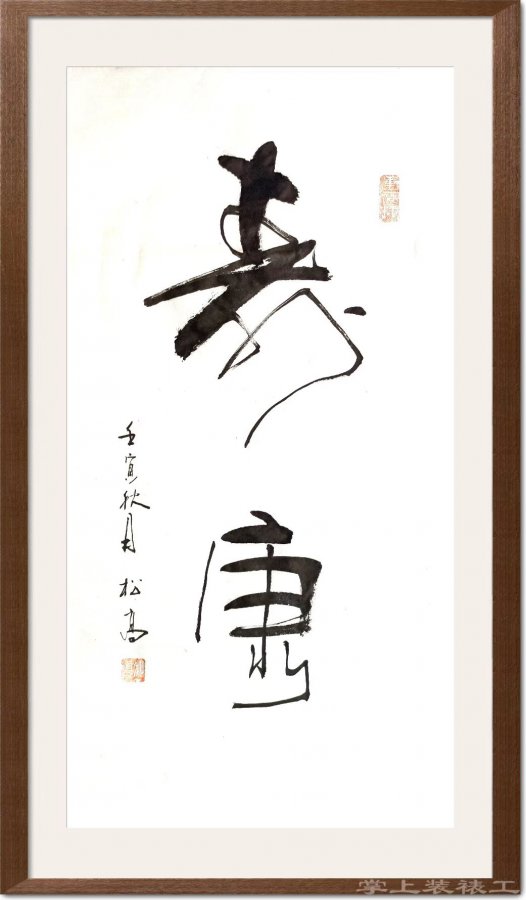 寿
康
壬寅秋月 松高
掌上装裱工